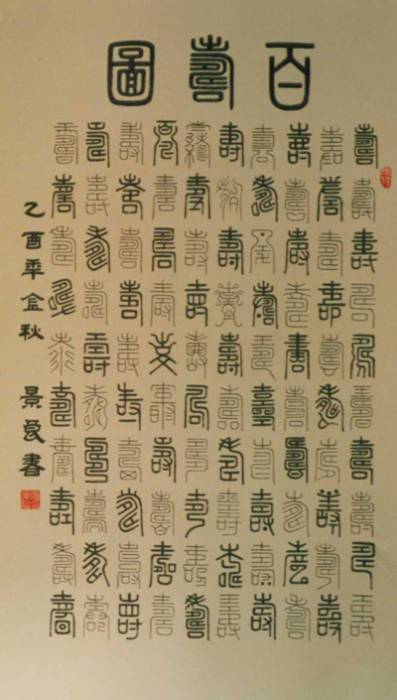 百壽圖
壽壽壽壽壽壽壽壽壽壽
壽壽壽壽壽壽壽壽壽壽
壽壽壽壽壽壽壽壽壽壽
壽壽壽壽壽壽壽壽壽壽
壽壽壽壽壽壽壽壽壽壽
壽壽壽壽壽壽壽壽壽壽
壽壽壽壽壽壽壽壽壽壽
壽壽壽壽壽壽壽壽壽壽
壽壽壽壽壽壽壽壽壽壽
壽壽壽壽壽壽壽壽壽壽
乙酉年金秋 景良書